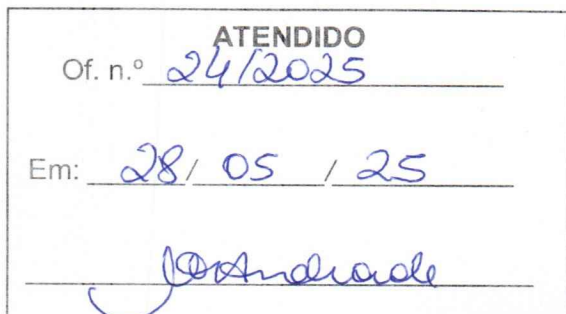 ATENDIDO
Of. n.º 24/2025
Em: 28/ 05 / 25
Andrade